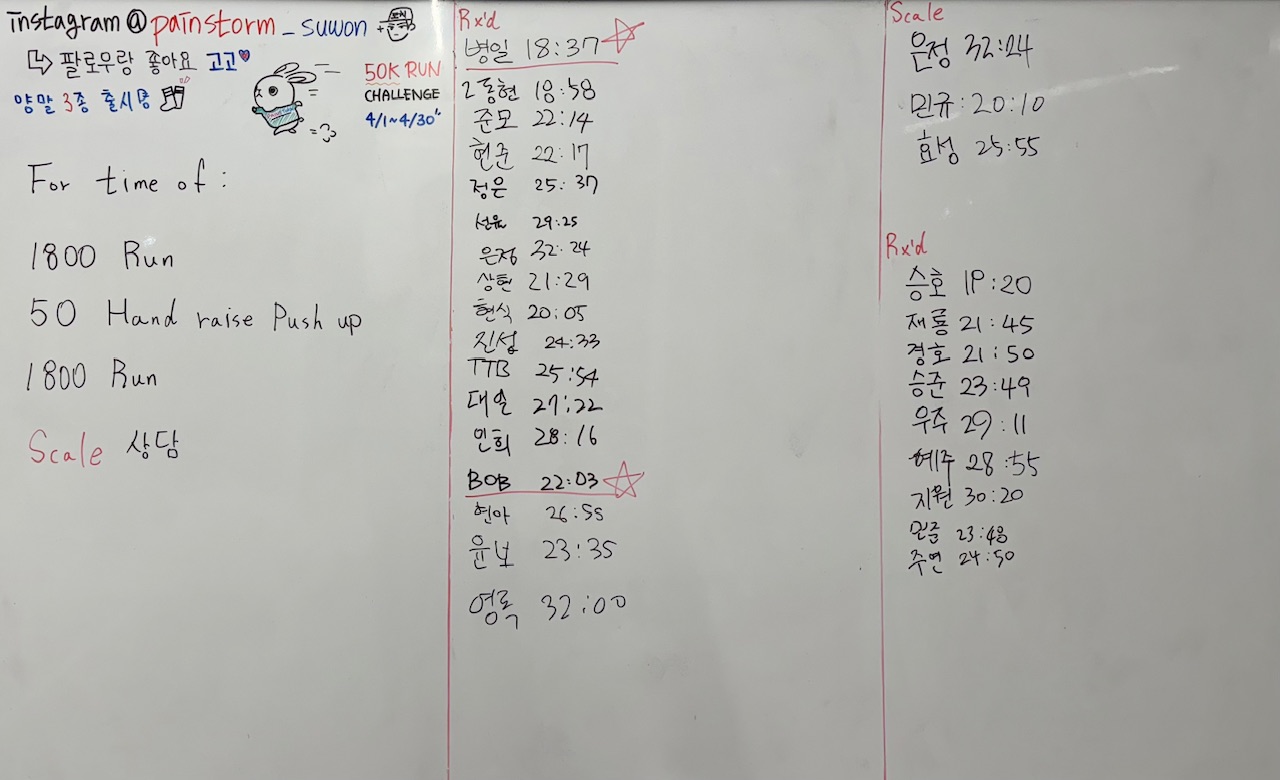 instagram@painstorm_suwon
팔로우랑 좋아요 고고
양말 3종 출시중
50K RUN
CHALLENGE
4/1~4/30"
For time of :
1800 Run
50 Hand raise Push up
1800 Run
Scale 상담
Rx'd
병일 18:37
2동현 18:58
준모 22:14
현준 22:17
정은 25:37
선유 29:25
은정 32:24
상현 21:29
현식 20:05
진섭 24:33
TTB 25:54
대일 27:22
민희 28:16
BOB 22:03
현아 26:55
윤보 23:35
영록 32:00
Scale
은정 32:24
민규:20:10
효성 25:55
Rx'd
승호 19:20
재룡 21:45
경호 21:50
승준 23:49
우주 29:11
예주 28:55
지원 30:20
민준 23:48
주연 24:50